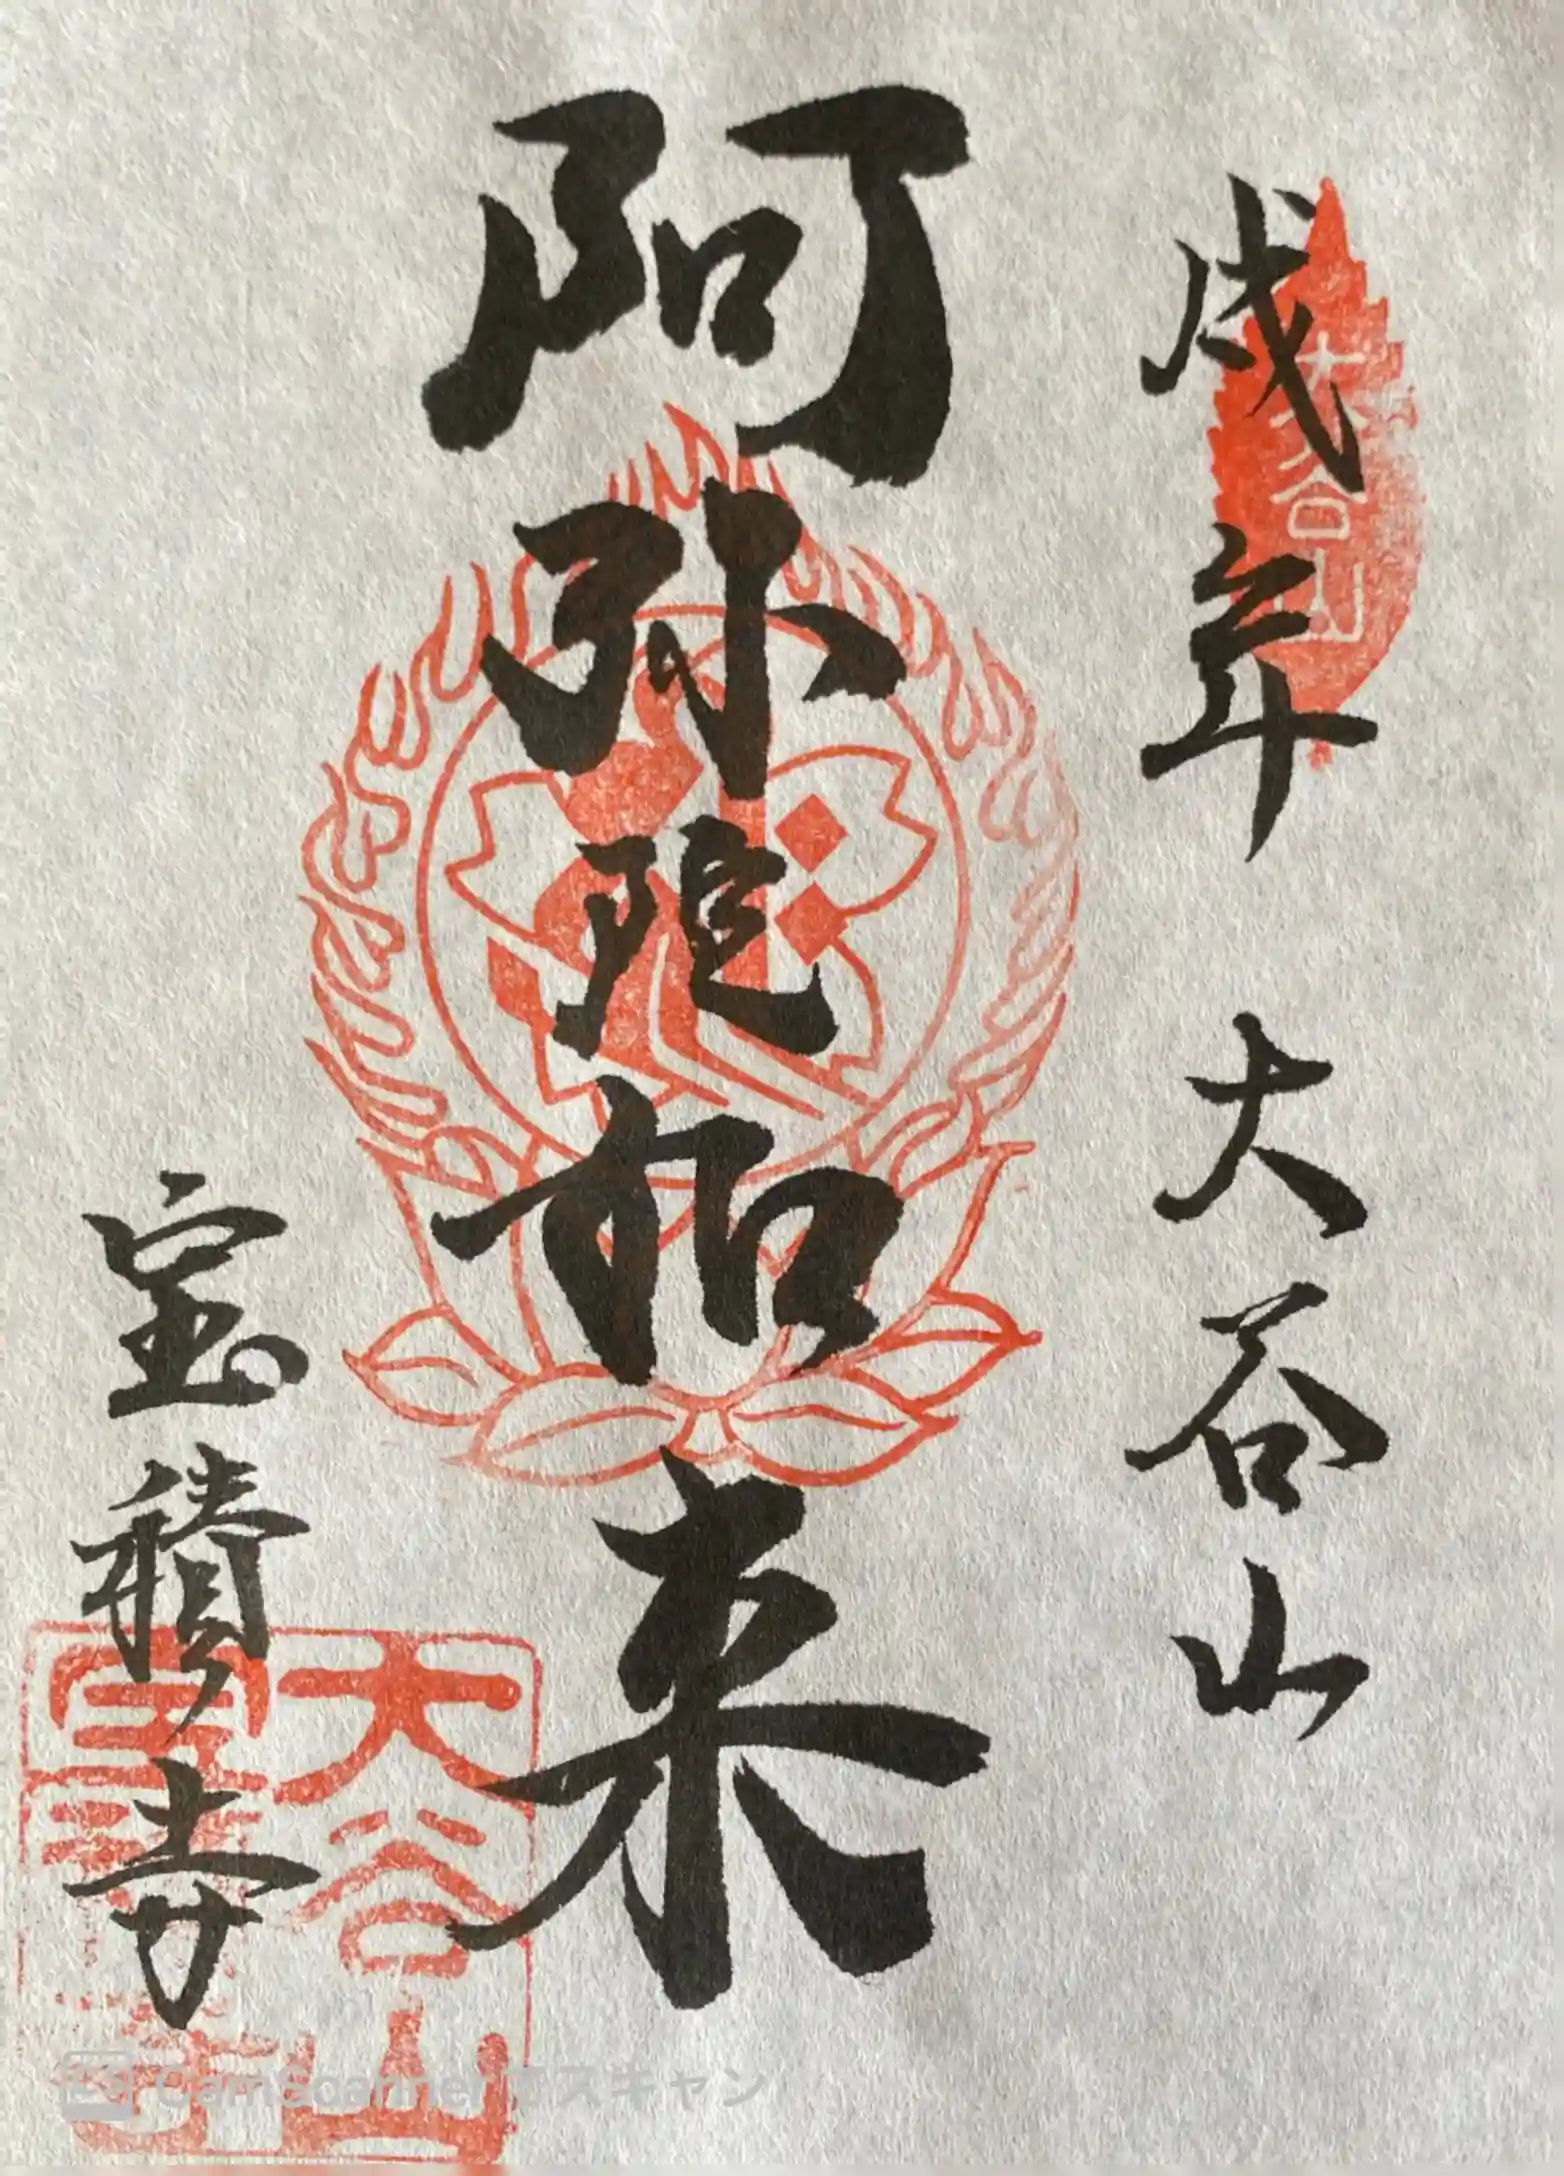 戌年 大谷山
大谷山
阿弥陀如来
宝積寺
大谷山
CamScanner でスキャン